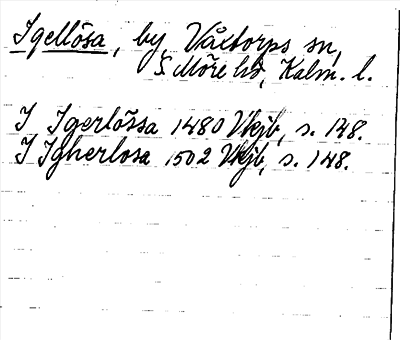 Igellösa, by Växtorps sn,
S Möre hd, Kalm. l.
I Igerlössa 1480 Vkjb, s. 148.
I Igherlosa 1502 Vkjb, s. 148.